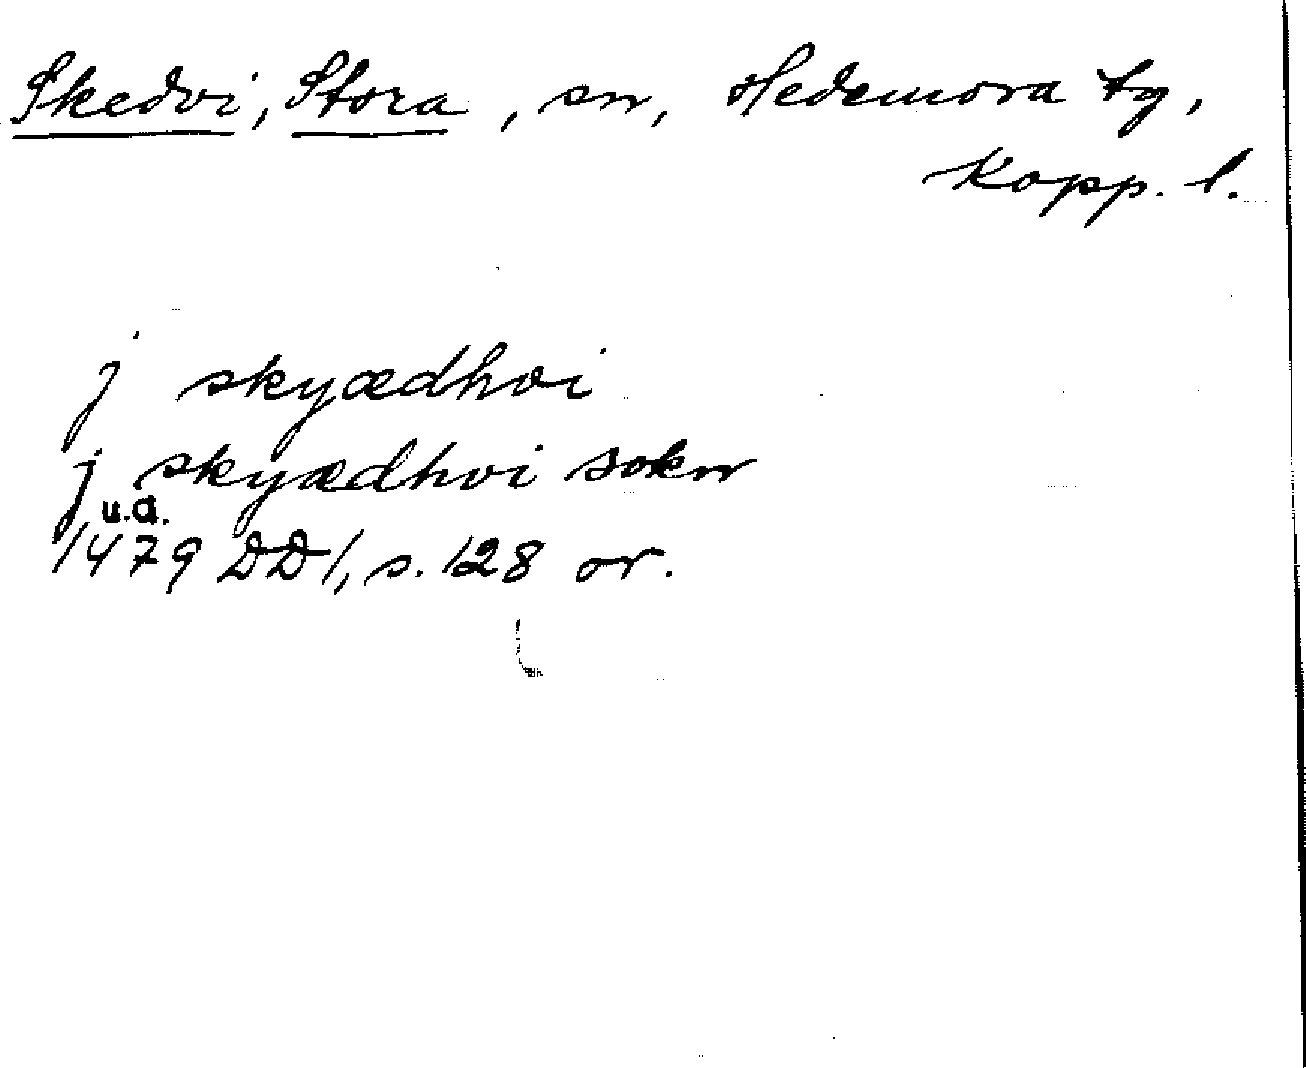 Skedvi, Stora, sn, Hedemora tg,
Kopp. l.
j skyædhvi
j skyædhvi sokn
u.a.
1479 DD1, s. 128 or.